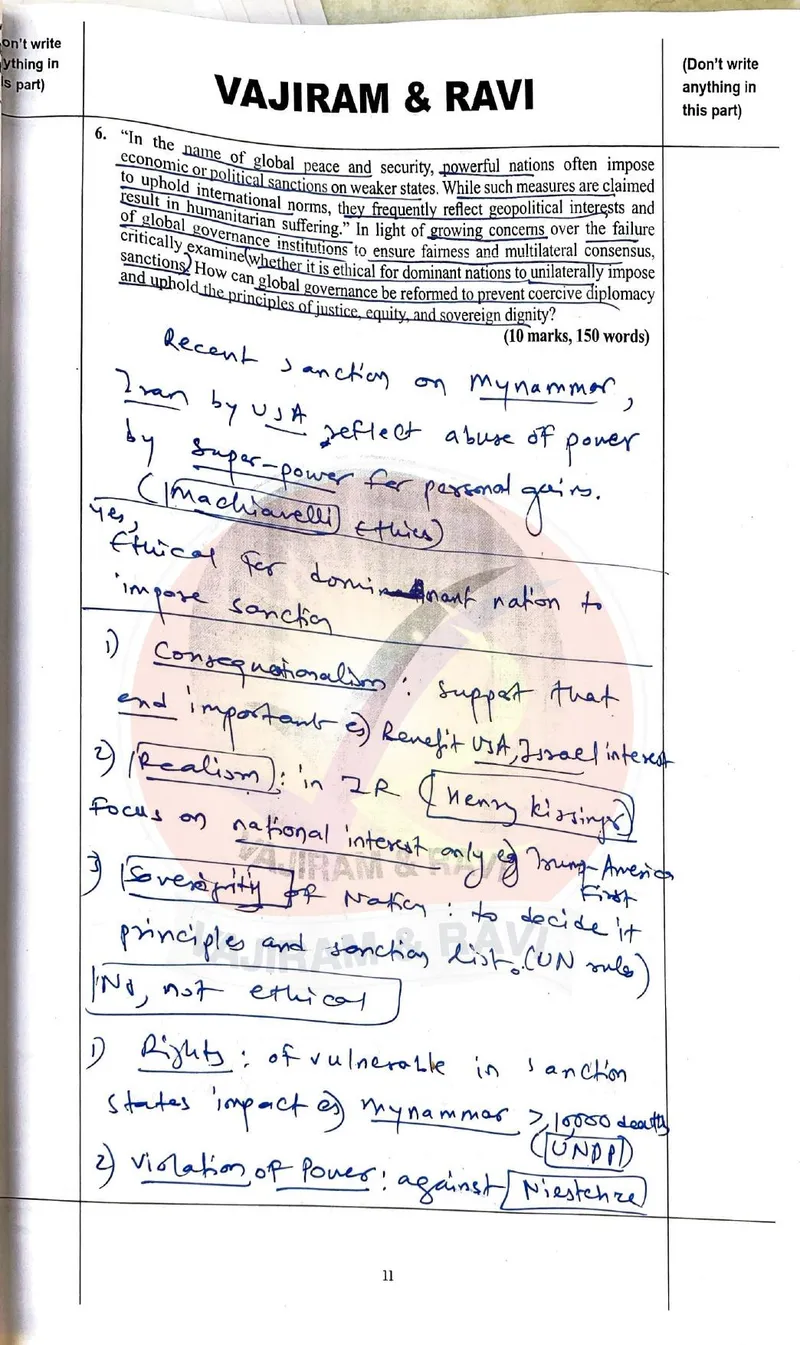 on't write
ything in
is part)
(Don't write
anything in
this part)
VAJIRAM & RAVI
6. "In the name of global peace and security, powerful nations often impose
economic or political sanctions on weaker states. While such measures are claimed
to uphold international norms, they frequently reflect geopolitical interests and
result in humanitarian suffering." In light of growing concerns over the failure
of global governance institutions to ensure fairness and multilateral consensus,
critically examine whether it is ethical for dominant nations to unilaterally impose
sanctions. How can global governance be reformed to prevent coercive diplomacy
and uphold the principles of justice, equity, and sovereign dignity?
(10 marks, 150 words)
Recent sanction on Mynammar,
Iran by USA reflect abuse of power
by super-power for personal gains.
(Machiavelli Ethics)
Yes,
Ethical for dominant nation to
impose sanction
1) Consequationalism : support that
end important eg) Benefit USA, Israel interest
2) Realism : in IR (Henry Kissinger)
Focus on national interest only eg) Trump-America
First
3) Sovereignity of Nation : to decide it
principles and sanction list. (UN rules)
VAJIRAM & RAVI
VAJIRAM & RAVI
No, not ethical
1) Rights : of vulnerable in sanction
states impact eg) Mynammar > 10,000 deaths
(UNDP)
2) Violation of Power : against Niestchze
11